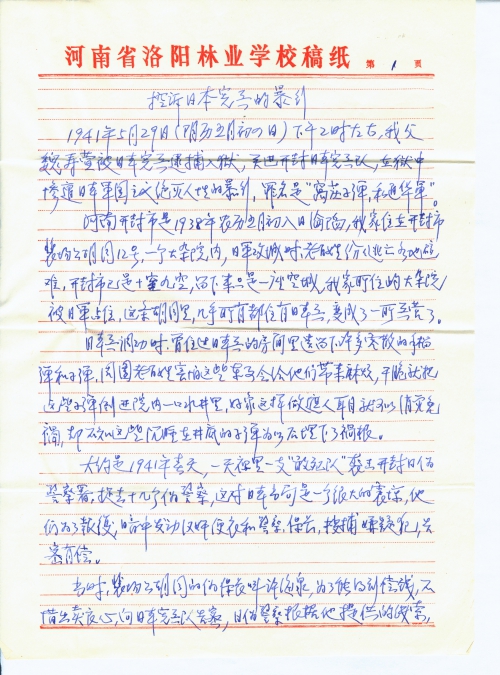 河南省洛阳林业学校稿纸 第 1 页
控诉日本宪兵的暴行
1941年5月29日(阴历五月初四日)下午2时左右,我父
魏寿萱被日本宪兵逮捕入狱,关进开封日本宪兵队,在狱中
惨遭日本军国主义绝灭人性的暴行,罪名是"窝藏子弹,私通华军"。
河南开封市是1938年农历五月初八日沦陷,我家住在开封市
胡同12号,一个大杂院内,日军攻城时,老百姓纷纷逃亡各地避
难,开封市已是十室九空,留下来只是一座空城,我家所住的大杂院
被日军占住,这条胡同里,几乎所有都住有日本兵,变成了一所兵营了。
日本兵调动时,曾住过日本兵的房间里遗留下许多零散的手枪
弹和子弹,周围老百姓害怕这些东西会给他们带来麻烦,干脆就把
这些子弹倒进院内一口水井里,好家这样做掩人耳目就可以消灾免
祸,却不知这些沉睡在井底的子弹为以后埋下了祸根。
大约是1941年春天,一天夜里一支"敢死队"袭击开封日伪
警察署,捉去十几个伪警察,这对日本当局是一个很大的震惊,他
们为了报复,暗中发动汉奸便衣和警察、保长,搜捕嫌疑犯,告
密有偿。
当时,胡同的伪保长叫许海泉,为了能得到偿钱,不
惜出卖良心,向日本宪兵队告密,日伪警察根据他提供的线索,